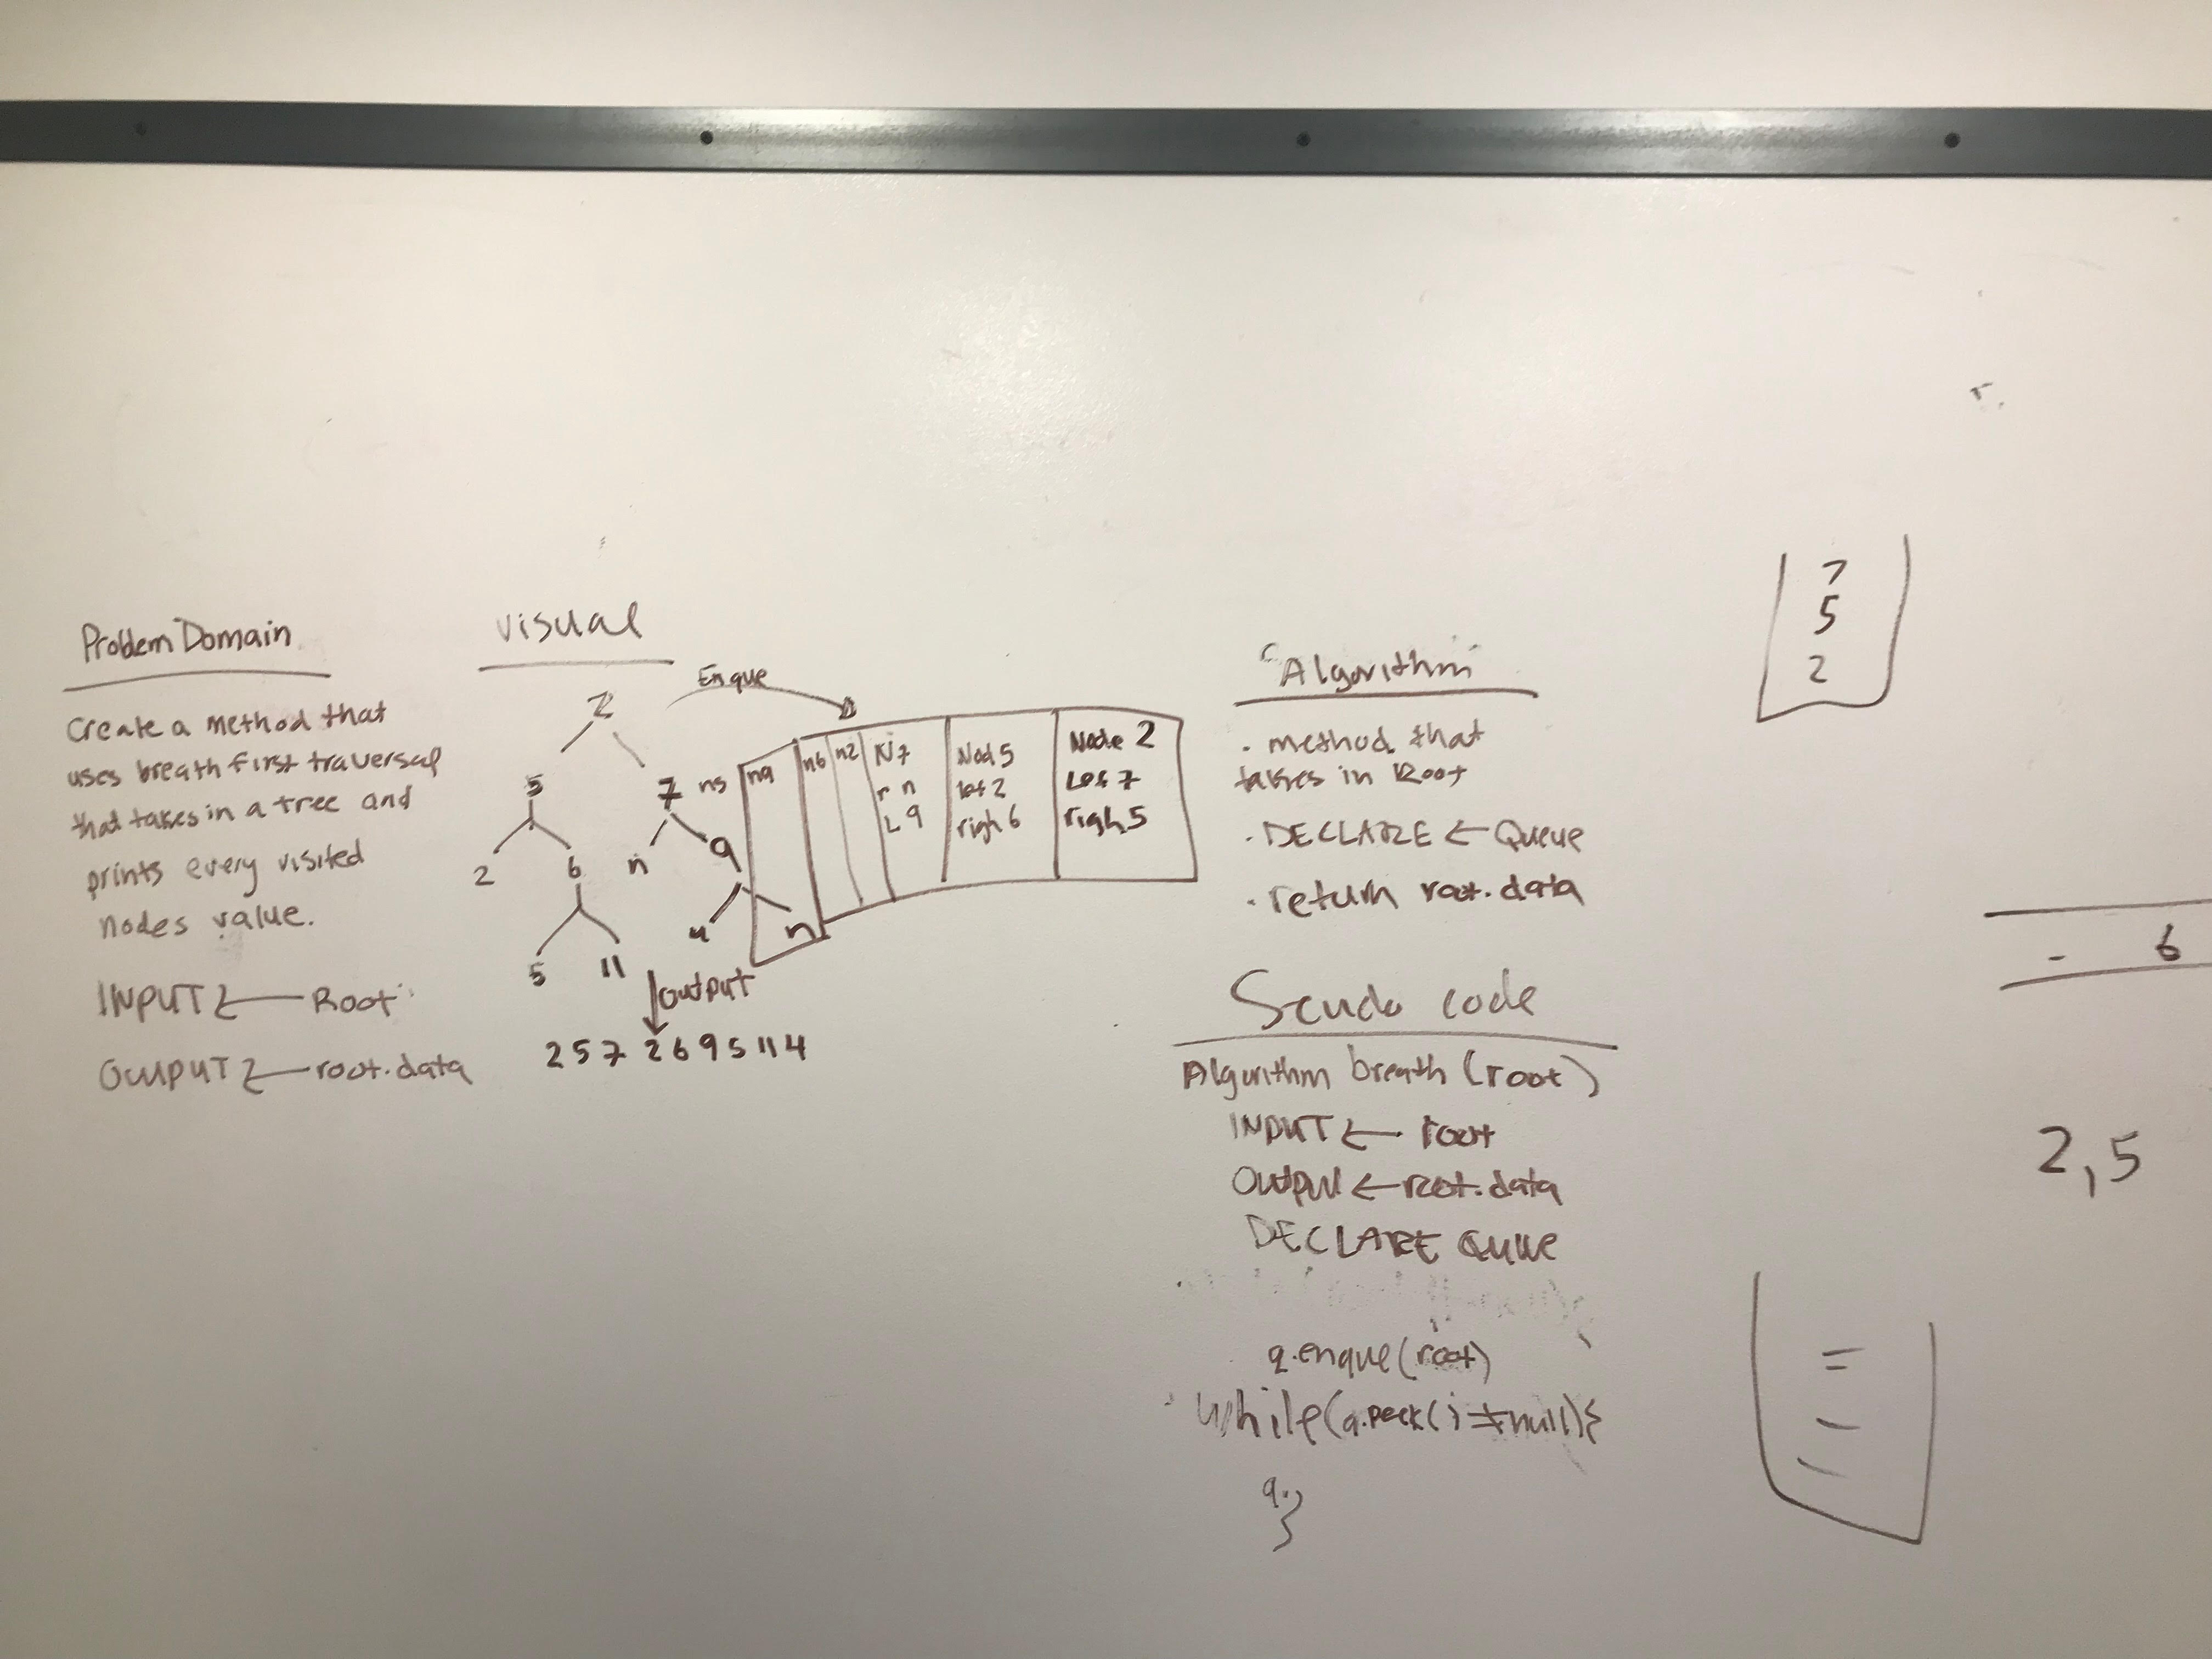 Problem Domain
Create a method that
uses breath first traversal
that takes in a tree and
prints every visited
nodes value.
INPUT ← Root
OUTPUT ← root.data
visual
Enque
2
5 7
2 6 n 9
5 11 4 n
n5 n9 n6 n2 N7 Nod 5 Node 2
r n Lef 2 Lef 7
L 9 righ 6 righ 5
output
2 5 7 2 6 9 5 11 4
"Algorithm"
. method that
takes in Root
. DECLARE ← Queue
. return root.data
Seudo code
Algorithm breath (root)
INPUT ← root
Output ← root.data
DECLARE Queue
q.enque(root)
while(q.peek() ≠ null){
q.
}
7
5
2
- 6
2,5
=
-
-